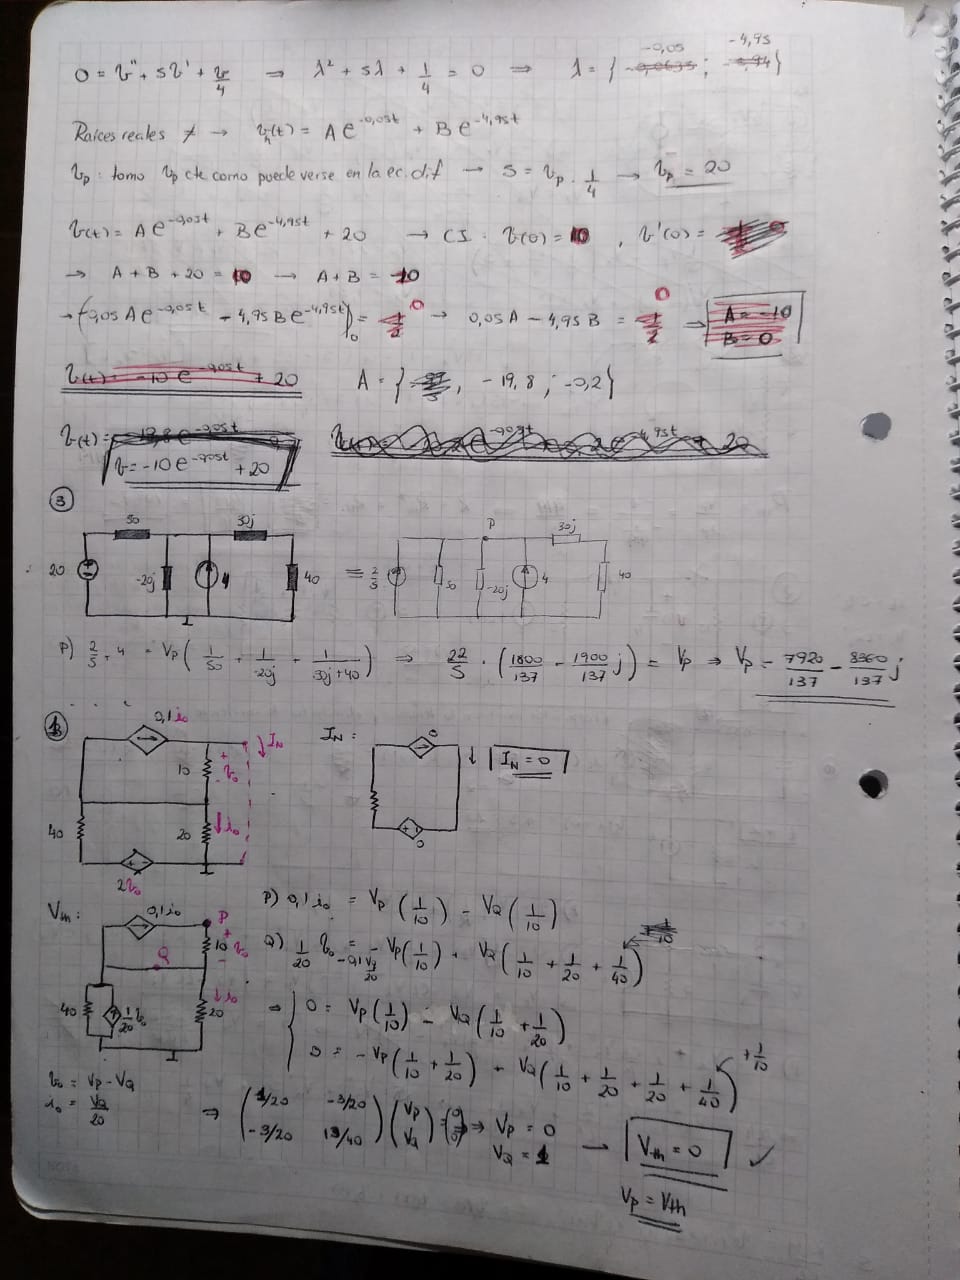 0 = v'' + 5v' + v/4 ⇒ λ² + 5λ + 1/4 = 0 ⇒ λ = { -0,05 ; -4,95 }
Raíces reales ≠ → v_h(t) = A e^{-0,05t} + B e^{-4,95t}
v_p: tomo v_p cte como puede verse en la ec. dif → 5 = v_p · 1/4 → v_p = 20
v(t) = A e^{-0,05t} + B e^{-4,95t} + 20 → CI: v(0) = 10, v'(0) = 0
→ A + B + 20 = 10 → A + B = -10
→ (-0,05 A e^{-0,05t} - 4,95 B e^{-4,95t})|₀ = 0 → 0,05A - 4,95B = 0 ⇒ A = -10
B = 0
v(t) = -10 e^{-0,05t} + 20 A = { , -19,8 ; -0,2 }
v(t) =
v = -10 e^{-0,05t} + 20
③
50 30j P 30j
20 -20j 4 40 ≡ 2/5 50 -20j 4 40
P) 2/5 + 4 = V_P ( 1/50 + 1/-20j + 1/(30j+40) ) ⇒ 22/5 · ( 1800/137 - 1900/137 j ) = V_P ⇒ V_P = 7920/137 - 8360/137 j
0,1i₀ ↓ I_N I_N: 0
10 + v₀ - ↓ I_N = 0
40 20 ↓ i₀
2v₀ 0
V_th: 0,1i₀ P P) 0,1 i₀ = V_P (1/10) - V_Q (1/10)
Q 10 + v₀ - Q) 1/20 v₀ - 0,1 V_Q/20 = -V_P (1/10) + V_Q ( 1/10 + 1/20 + 1/40 )
40 1/20 v₀ ↓ i₀ 20 ⇒ { 0 = V_P (1/10) - V_Q ( 1/10 + 1/20 )
0 = -V_P ( 1/10 + 1/20 ) + V_Q ( 1/10 + 1/20 + 1/20 + 1/40 ) + 1/10
v₀ = V_P - V_Q
i₀ = V_Q/20 ⇒ ( 1/20 -3/20 ; -3/20 13/40 ) ( V_P ; V_Q ) = ( 0 ; 0 ) ⇒ V_P = 0 → V_th = 0 ✓
V_P = V_th